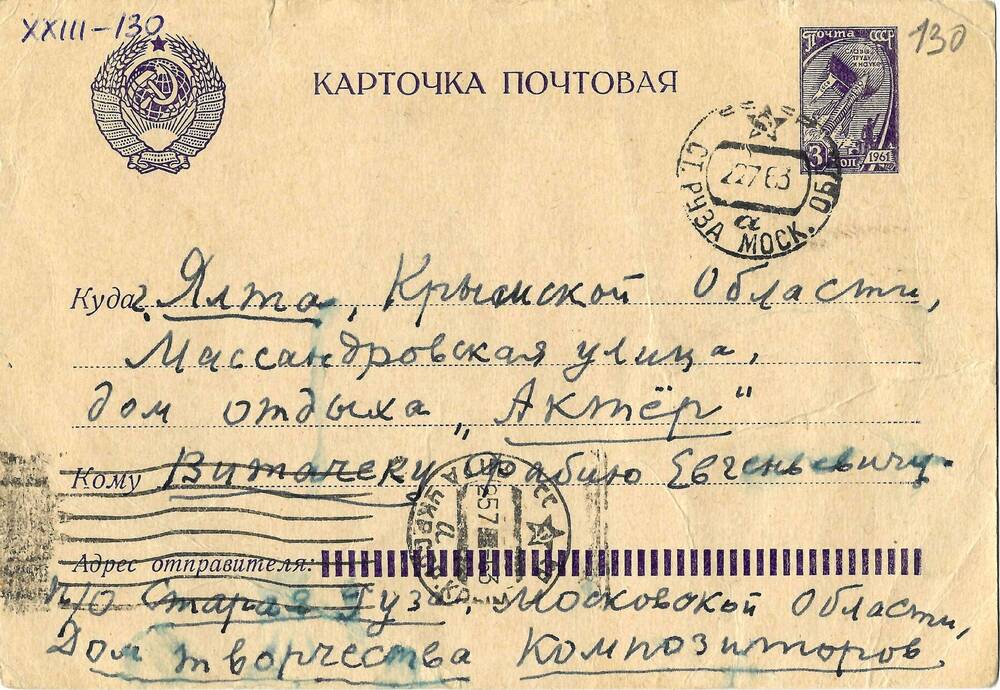 XXIII-130
130
КАРТОЧКА ПОЧТОВАЯ
ПОЧТА СССР
3 КОП. 1961
22763
а
СТ. РУЗА МОСК. ОБЛ.
Куда г. Ялта, Крымской Области,
Массандровская улица,
дом отдыха „Актёр"
Кому Витачеку Фабию Евгеньевичу.
Адрес отправителя:
п/о Старая Руза, Московской Области,
Дом творчества Композиторов.